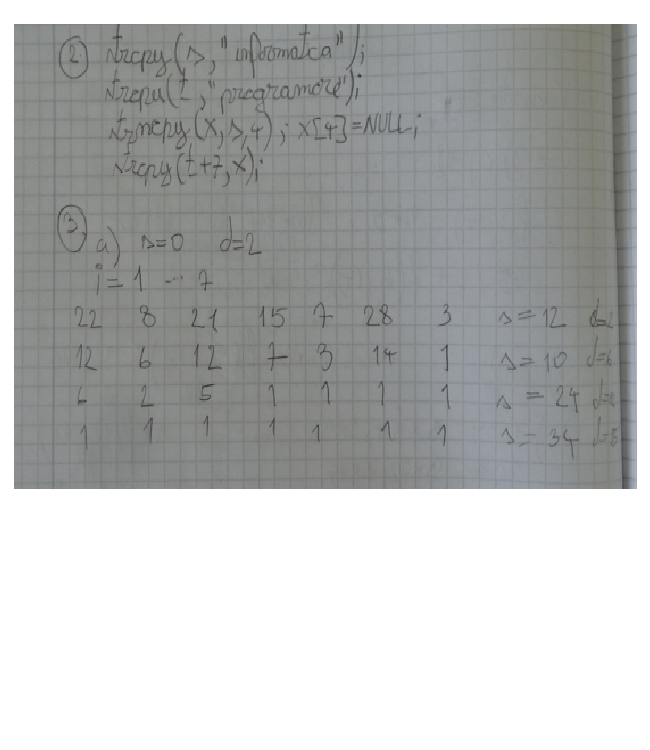 2. strcpy(s,"informatica");
strcpy(t,"programare");
strncpy(x,s,4); x[4]=NULL;
strcpy(t+7,x);
3. a) s=0 d=2
i=1 ... 7
22 8 21 15 7 28 3 s=12 d=2
12 6 12 7 3 14 1 s=10 d=6
6 2 5 1 1 1 1 s=24
1 1 1 1 1 1 1 s=34